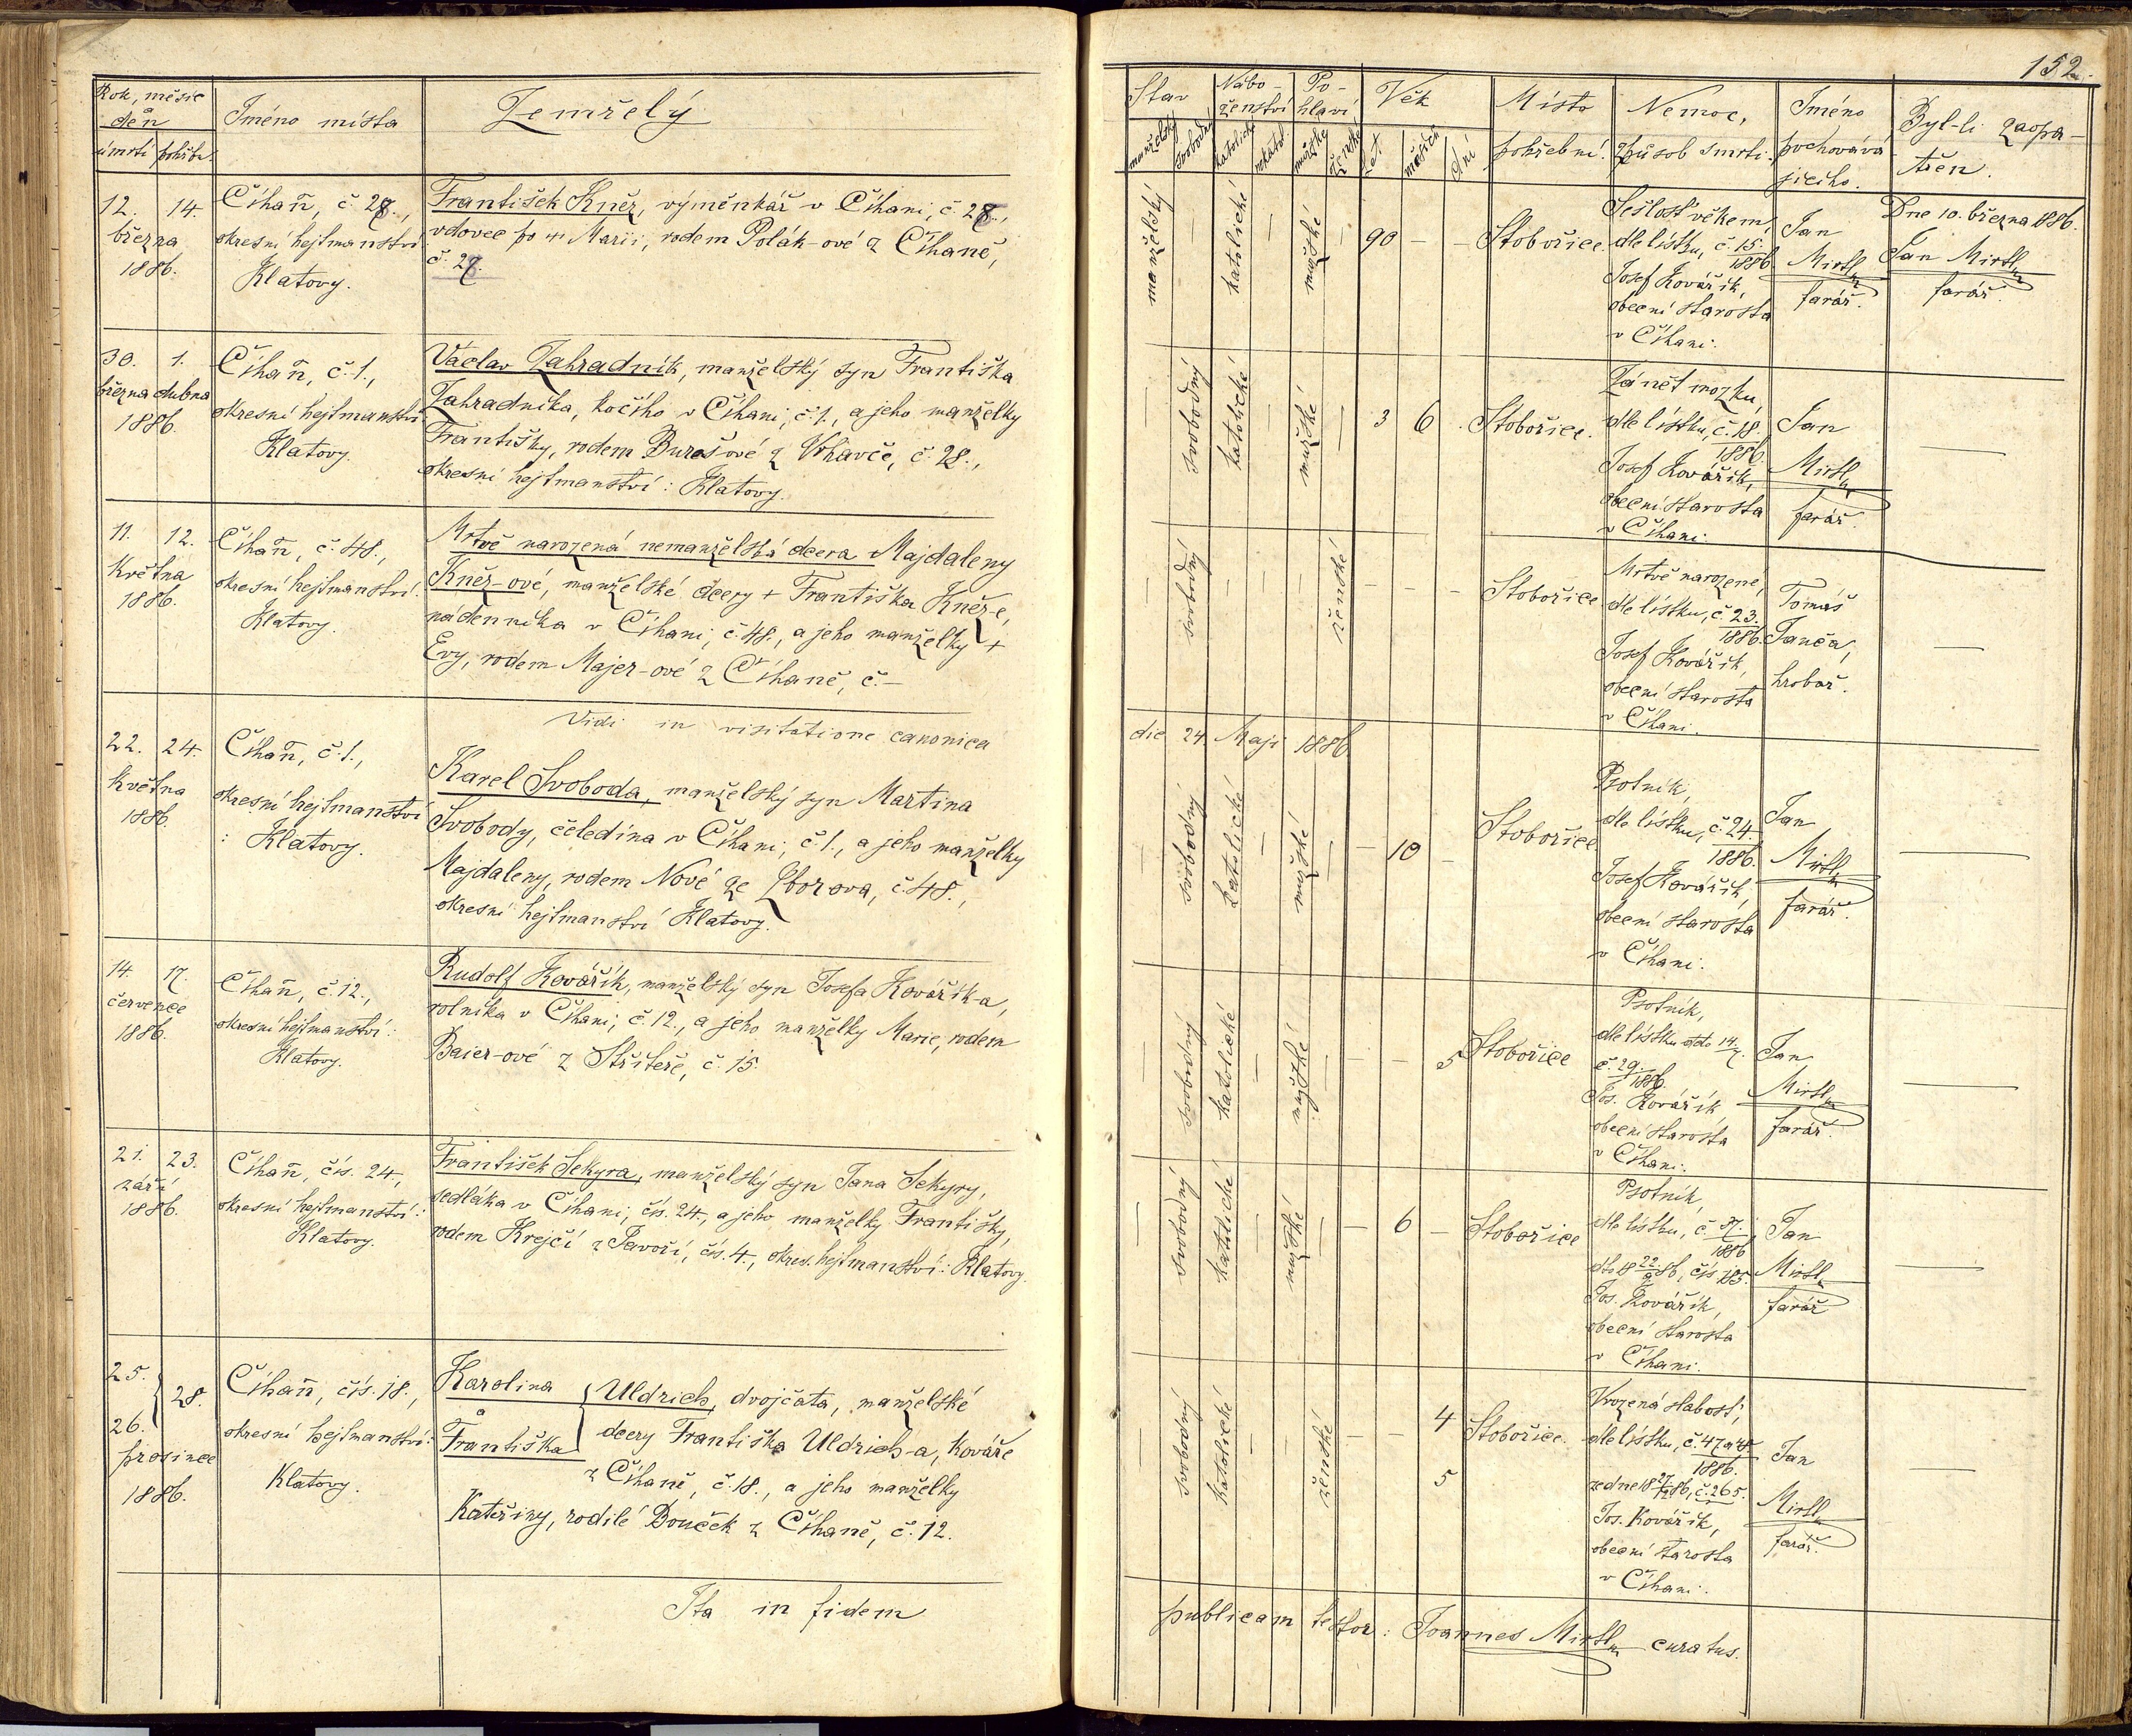 152.
Rok, měsíc
a
den
úmrtí pohřbu
Jméno místa
Zemřelý
Stav
manželský
svobodný
Nábo-
ženství
katolické
nekatol.
Po-
hlaví
mužské
ženské
Věk
let
měsíců
dní
Místo
pohřební.
Nemoc,
způsob smrti.
Jméno
pochováva-
jícího.
Byl-li zaopa-
třen.
12. 14.
března
1886.
Číhaň, č. 28.,
okresní hejtmanství
Klatovy.
František Kněz, výměnkář v Číhani, č. 28.,
vdovec po Marii, rodem Polák-ové z Číhaně,
č. 28.
manželský
katolické
mužské
90 – –
Stobořice.
Sešlosť věkem,
dle lístku, č. 15.
1886
Josef Kovářík,
obecní starosta
v Číhani.
Jan
Mirtl
farář.
Dne 10. března 1886.
Jan Mirtl
farář.
30. 1.
března dubna
1886.
Číhaň, č. 1.,
okresní hejtmanství
Klatovy.
Václav Zahradník, manželský syn Františka
Zahradníka, kočího v Číhani, č. 1., a jeho manželky
Františky, rodem Burešové z Vrhavče, č. 28.,
okresní hejtmanství: Klatovy.
svobodný
katolické
mužské
3 6
Stobořice.
Zánět mozku,
dle lístku, č. 18.
1886.
Josef Kovářík,
obecní starosta
v Číhani.
Jan
Mirtl
farář.
11. 12.
Května
1886.
Číhaň, č. 48.,
okresní hejtmanství:
Klatovy.
Mrtvě narozená nemanželská dcera Majdaleny
Kněz-ové, manželské dcery + Františka Kněz-e,
nádenníka v Číhani, č. 48., a jeho manželky +
Evy, rodem Majer-ové z Číhaně, č. –
svobodný
ženské
– – –
Stobořice
Mrtvě narozené,
dle lístku, č. 23.
1886.
Josef Kovářík,
obecní starosta
v Číhani.
Tomáš
Janča,
hrobař.
Vidi in visitatione canonica
die 24. Maji 1886
22. 24.
Května
1886.
Číhaň, č. 1.,
okresní hejtmanství
: Klatovy.
Karel Svoboda, manželský syn Martina
Svobody, čeledína v Číhani, č. 1., a jeho manželky
Majdaleny, rodem Nové ze Zborova, č. 48.,
okresní hejtmanství Klatovy.
svobodný
katolické
mužské
– 10 –
Stobořice
Psotník,
dle lístku, č. 24.
1886.
Josef Kovářík,
obecní starosta
v Číhani.
Jan
Mirtl
farář.
14. 17.
července
1886.
Číhaň, č. 12.,
okresní hejtmanství:
Klatovy.
Rudolf Kovářík, manželský syn Josefa Kovářík-a,
rolníka v Číhani, č. 12., a jeho manželky Marie, rodem
Baier-ové z Střiteře, č. 15.
svobodný
katolické
mužské
– – 5
Stobořice
Psotník,
dle lístku dto 14/7.
č. 29.
1886.
Jos. Kovářík,
obecní starosta
v Číhani.
Jan
Mirtl
farář.
21. 23.
září
1886.
Číhaň, čís. 24.,
okresní hejtmanství:
Klatovy.
František Sekyra, manželský syn Jana Sekyry,
sedláka v Číhani, čís. 24., a jeho manželky Františky,
rodem Krejčí z Javoří, čís. 4., okres. hejtmanství: Klatovy.
svobodný
katolické
mužské
– 6 –
Stobořice
Psotník,
dle lístku, č. 37.
1886
dto 18 22/9 86, čís. 185.
Jos. Kovářík,
obecní starosta
v Číhani.
Jan
Mirtl
farář
25.
26. 28.
prosince
1886.
Číhaň, čís. 18.,
okresní hejtmanství:
Klatovy.
Karolina
a
Františka
Uldrich, dvojčata, manželské
dcery Františka Uldrich-a, Kováře
z Číhaně, č. 18., a jeho manželky
Kateřiny, rodilé Bouček z Číhaně, č. 12.
svobodný
katolické
ženské
– – 4
5
Stobořice.
Vrozená slabosť,
dle lístku, č. 47 a 48
1886.
ze dne 18 27/12 86, č. 265.
Jos. Kovářík,
obecní starosta
v Číhani.
Jan
Mirtl
farář.
Ita in fidem publicam testor: Joannes Mirtl curatus.